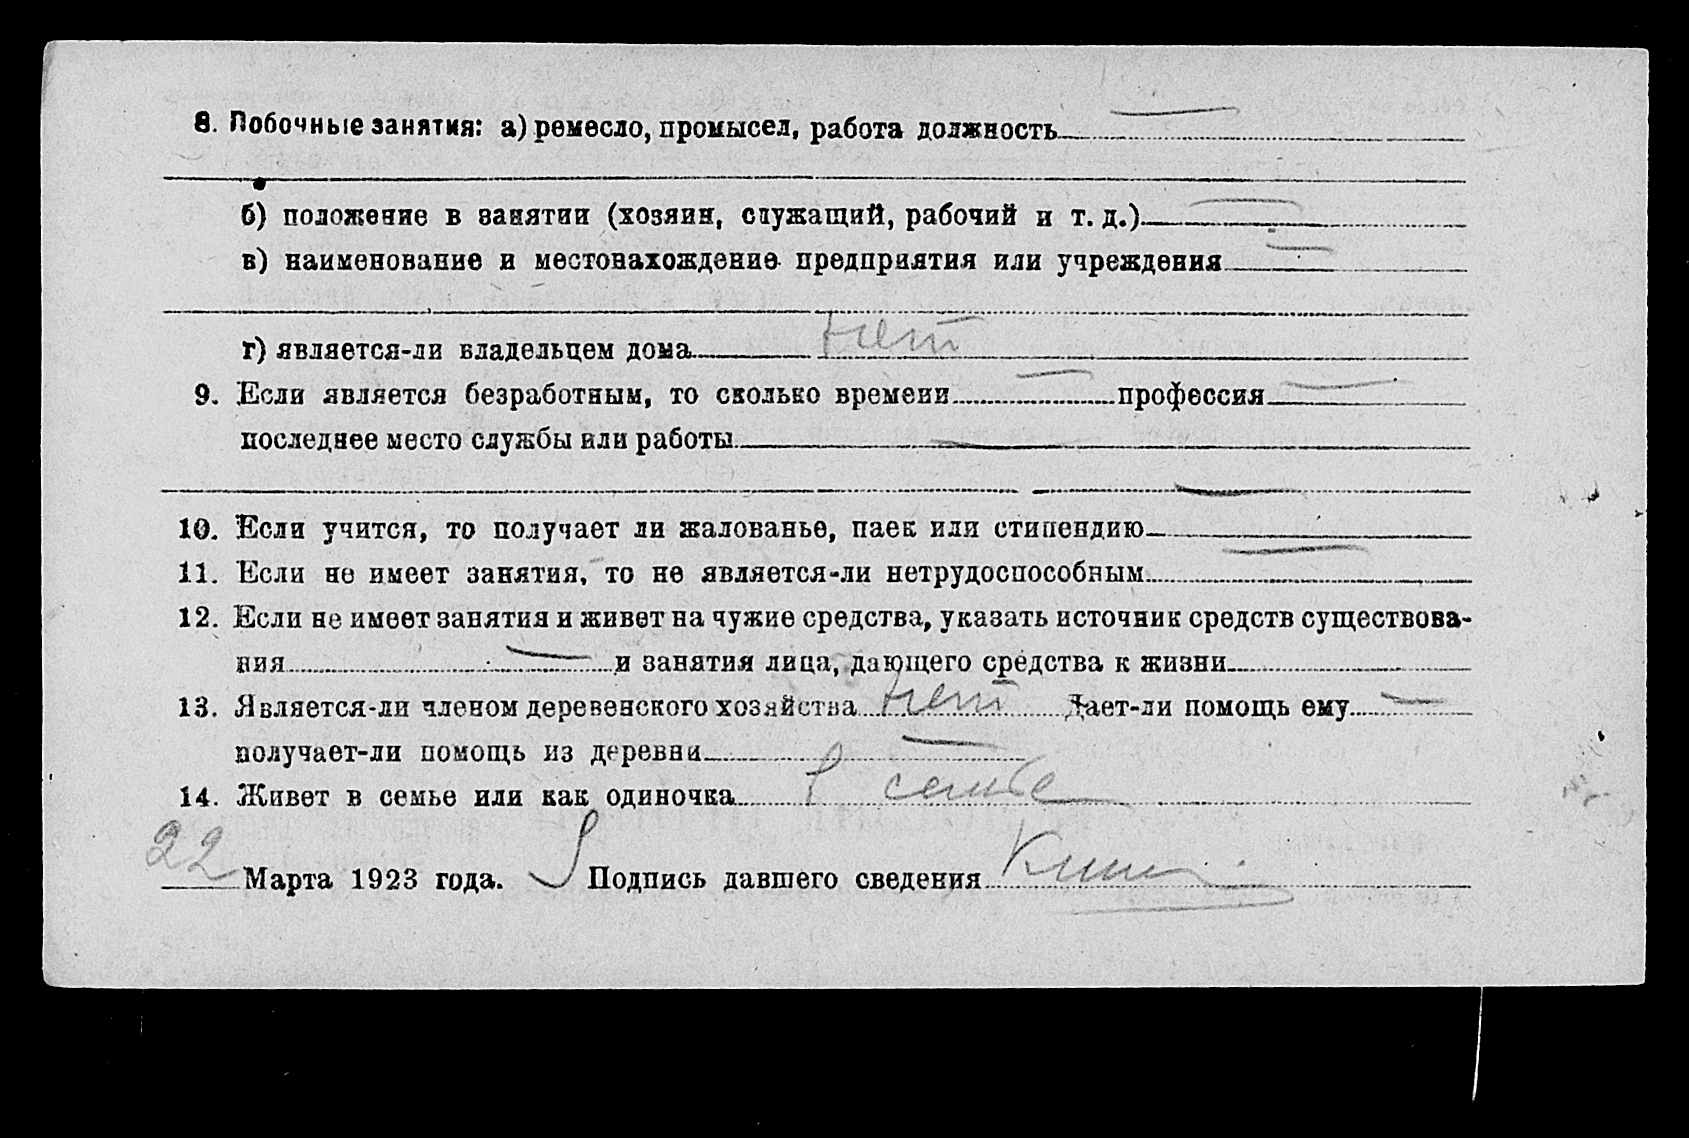 8. Побочные занятия: а) ремесло, промысел, работа должность —
б) положение в занятии (хозяин, служащий, рабочий и т. д.) —
в) наименование и местонахождение предприятия или учреждения —
г) является-ли владельцем дома нет
9. Если является безработным, то сколько времени — профессия —
последнее место службы или работы —
—
10. Если учится, то получает ли жалованье, паек или стипендию —
11. Если не имеет занятия, то не является-ли нетрудоспособным
12. Если не имеет занятия и живет на чужие средства, указать источник средств существова-
ния — и занятия лица, дающего средства к жизни
13. Является-ли членом деревенского хозяйства нет Дает-ли помощь ему —
получает-ли помощь из деревни —
14. Живет в семье или как одиночка В семье
22 Марта 1923 года. Подпись давшего сведения